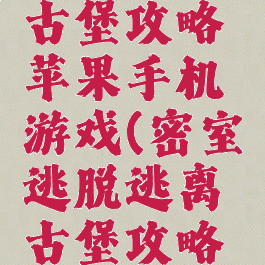 古堡攻略
苹果手机
游戏(密室
逃脱逃离
古堡攻略